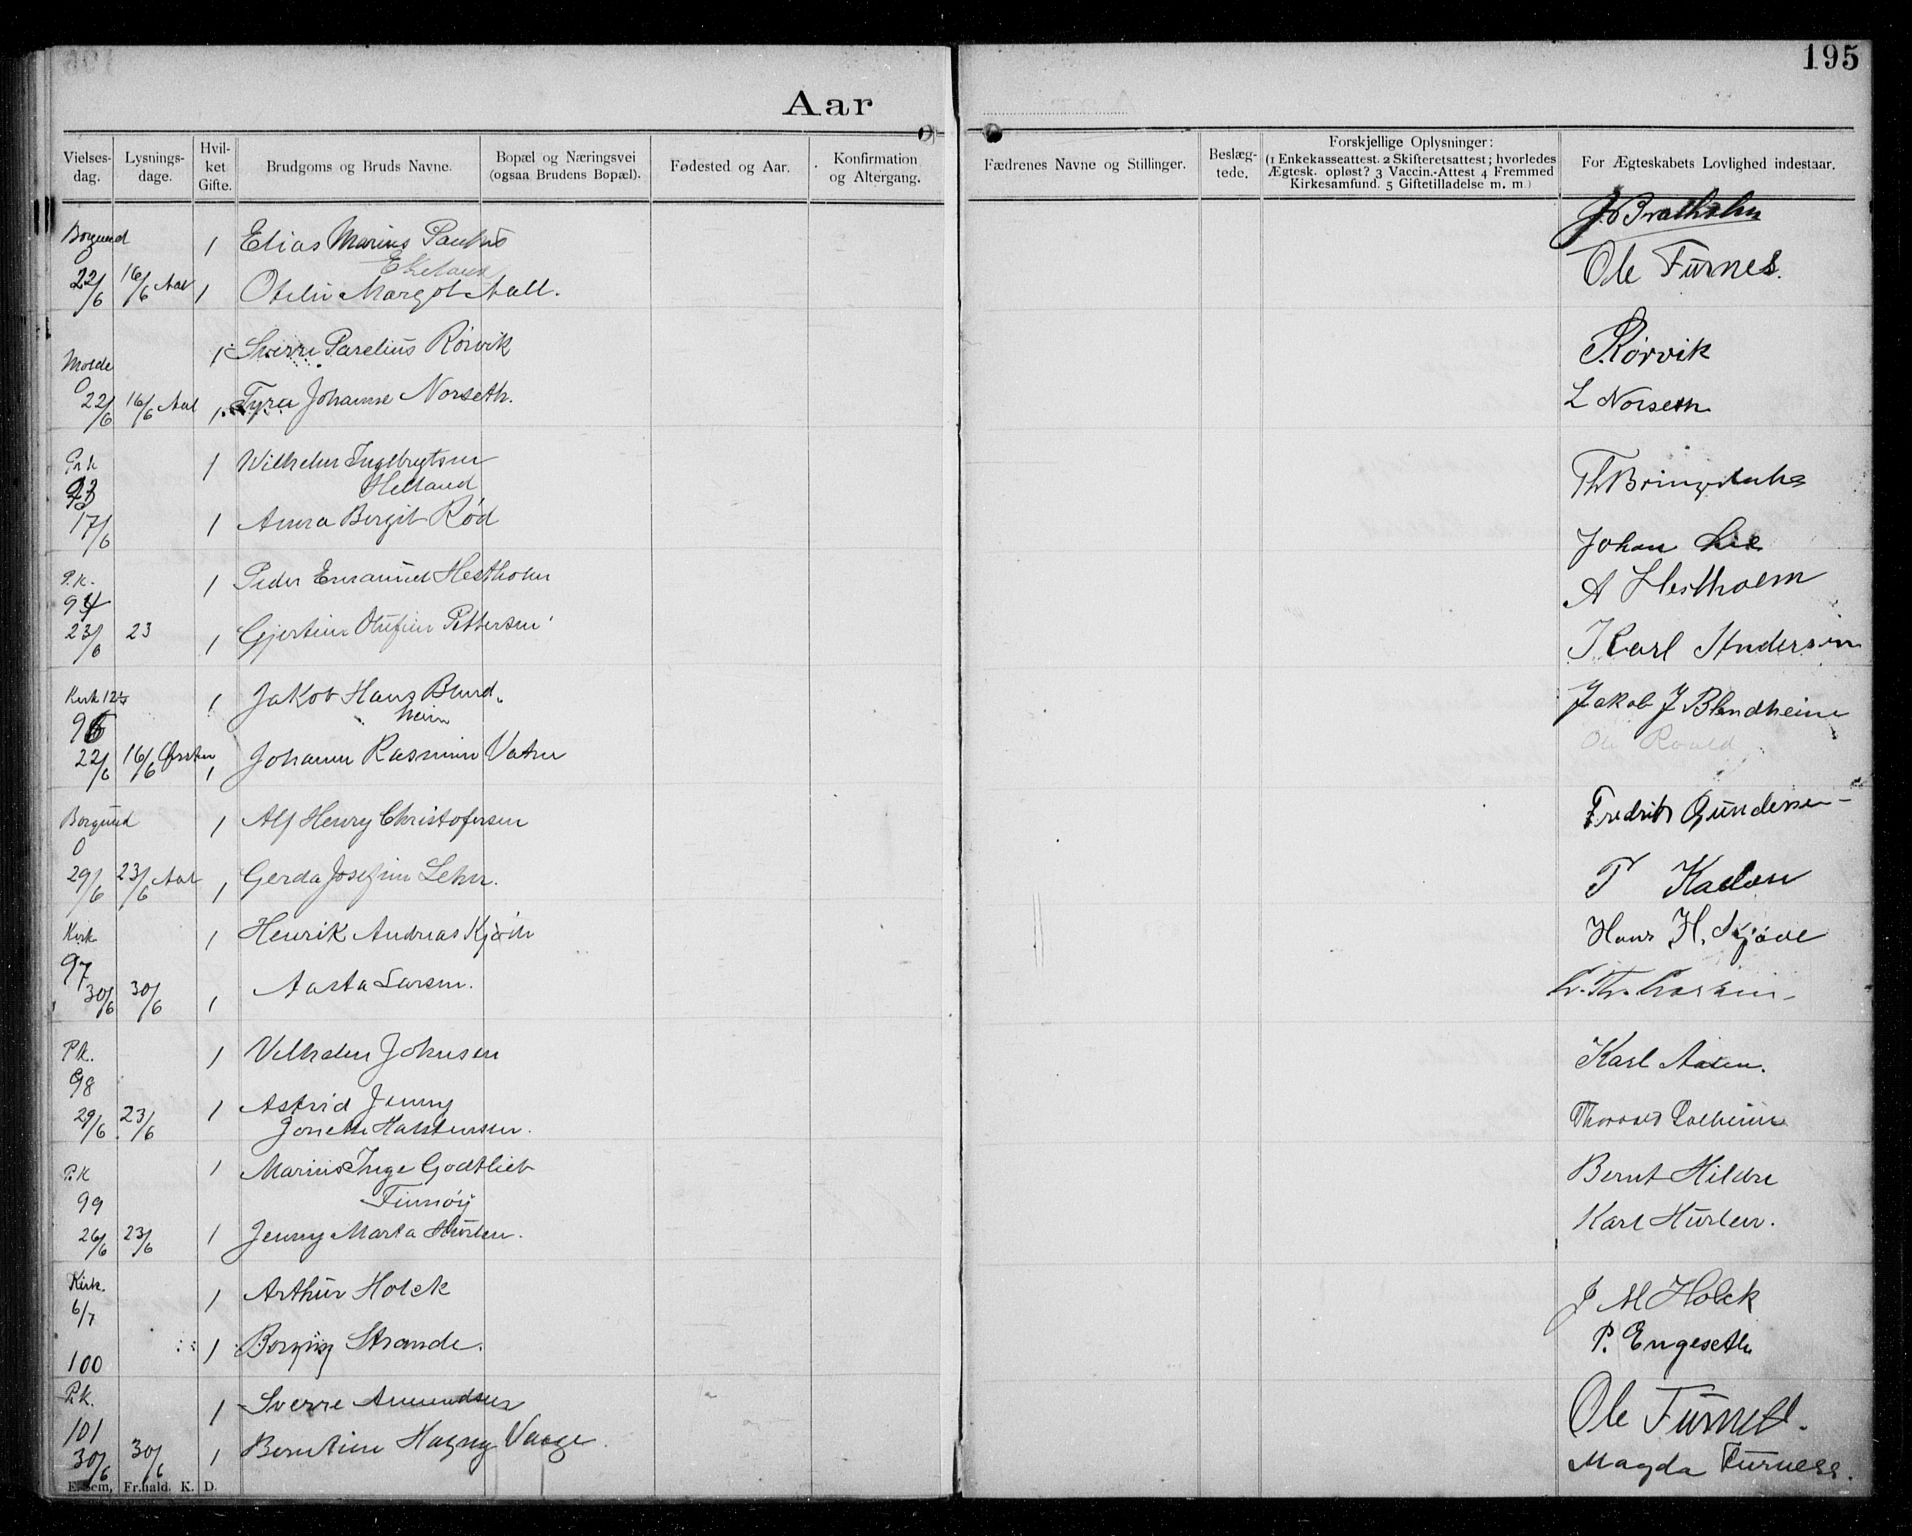 195
Aar
Vielses-dag. Lysnings-dage. Hvil-ket Gifte. Brudgoms og Bruds Navne. Bopæl og Næringsvei (ogsaa Brudens Bopæl). Fødested og Aar. Konfirmation og Altergang. Fædrenes Navne og Stillinger. Beslæg-tede. Forskjellige Oplysninger: (1 Enkekasseattest. 2 Skifteretsattest; hvorledes Ægtesk. opløst? 3 Vaccin.-Attest 4 Fremmed Kirkesamfund. 5 Giftetilladelse m. m.) For Ægteskabets Lovlighed indestaar.
Borgund 1 Elias Marius
Ekeland Ole Furnes.
22/6 16/6 Aal 1 Margot Aall.
Molde 1 Sverre Parelius Rørvik Rørvik
22/6 16/6 Aal 1 Johanne Norseth. L Norseth
1 Wilhelm Ingebrigtsen
Helland
17/6 1 Anna Bergit Rød Johan Lie
P.k. 1 Peder Emanuel Hestholm A Hestholm
94
23/6 23 1 Gjertine Olufine Pettersen Karl Andersen
Kirk 12½ 1 Jakob Hans Blind- Jakob J Blindheim
heim
22/6 16/6 Ørsten 1 Johanne Rasmine Vatne Ole Roald
Borgund 1 Alf Henry Christofersen Fredrik Gundersen
29/6 23/6 Aal 1 Gerda Josefine Lehn.
Kirk 1 Henrik Andreas Hans H.
97
30/6 30/6 1 Aasta Larsen.
P.k. 1 Vilhelm Johnsen Karl Aasen.
98
29/6 23/6 1 Astrid Jenny
Jonette Halstensen. Solheim
P.k 1 Marius Inge Godtlieb Bernt Hildre
99 Finnøy
26/6 23/6 1 Jenny Marta Hurlen. Karl Hurlen.
Kirk. 1 Arthur Holck J M Holck
6/7
1 Borgny Strande. P. Engeseth
100
P.k. 1 Sverre Amundsen Ole Furnes.
101
30/6 30/6 1 Berntine Hagny Vaage. Magda Furness.
E. Sem, Fr.hald. K. D.